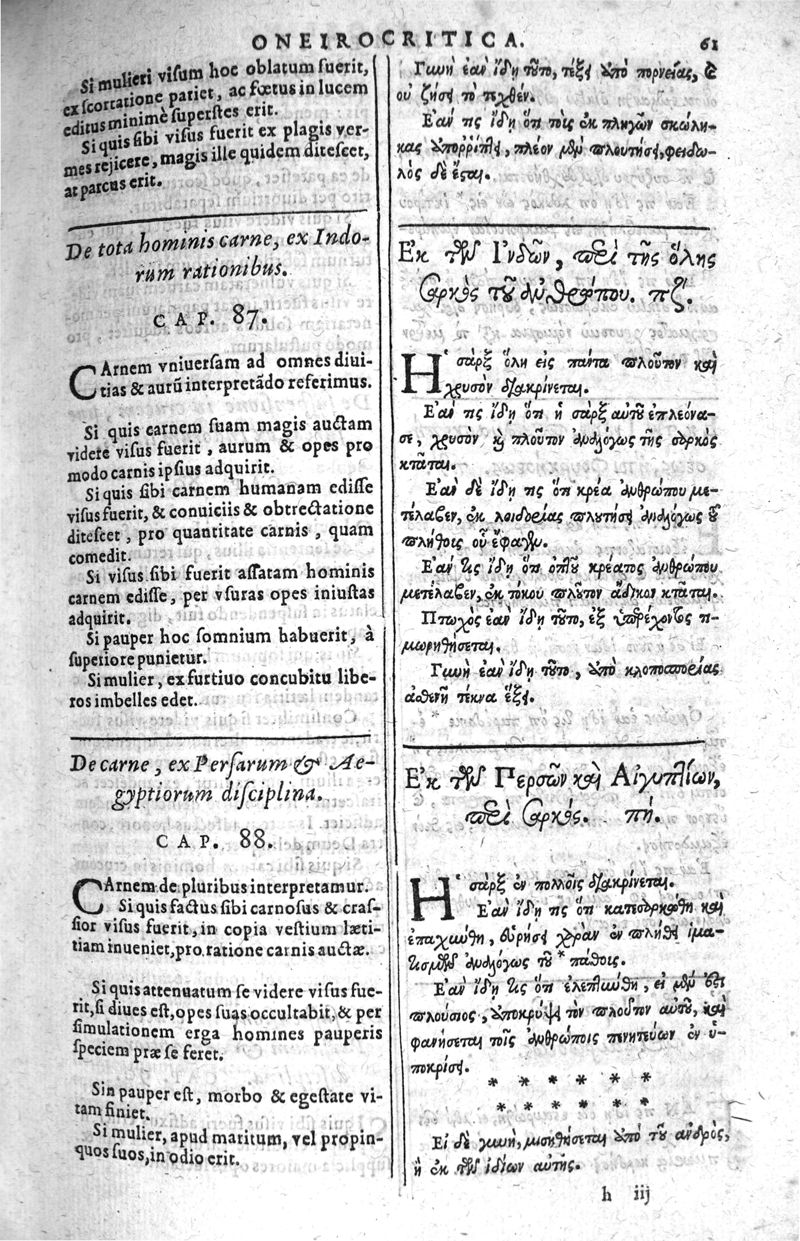 ONEIROCRITICA.
61
Si mulieri visum hoc oblatum fuerit,
ex scortatione pariet, ac fœtus in lucem
editus minimè superstes erit.
Si quis sibi visus fuerit ex plagis ver-
mes rejicere, magis ille quidem ditescet,
at parcus erit.
De tota hominis carne, ex Indo-
rum rationibus.
CAP. 87.
CArnem vniuersam ad omnes diui-
tias & aurũ interpretãdo referimus.
Si quis carnem suam magis auctam
videre visus fuerit, aurum & opes pro
modo carnis ipsius adquirit.
Si quis sibi carnem humanam edisse
visus fuerit, & conuiciis & obtrectatione
ditescet, pro quantitate carnis, quam
comedit.
Si visus sibi fuerit assatam hominis
carnem edisse, per vsuras opes iniustas
adquirit.
Si pauper hoc somnium habuerit, à
superiore punietur.
Si mulier, ex furtiuo concubitu libe-
ros imbelles edet.
De carne, ex Persarum & Ae-
gyptiorum disciplina.
CAP. 88.
CArnem de pluribus interpretamur.
Si quis factus sibi carnosus & cras-
sior visus fuerit, in copia vestium læti-
tiam inueniet, pro ratione carnis auctæ.
Si quis attenuatum se videre visus fue-
rit, si diues est, opes suas occultabit, & per
simulationem erga homines pauperis
speciem præ se feret.
Sin pauper est, morbo & egestate vi-
tam finiet.
Si mulier, apud maritum, vel propin-
quos suos, in odio erit.
Γυνὴ ἐὰν ἴδῃ τοῦτο, τέξει ὑπὸ πορνείας, καὶ
οὐ ζήσει τὸ τεχθέν.
Ἐάν τις ἴδῃ ὅτι τοῖς ἐκ πληγῶν σκώλη-
κας ὑπορρίπτει, πλέον μὲν πλουτήσει, φειδω-
λὸς δὲ ἔσται.
Ἐκ τῶν Ἰνδῶν, περὶ τῆς ὅλης
σαρκὸς τοῦ ἀνθρώπου. πζ΄.
Ἡ σὰρξ ὅλη εἰς πάντα πλοῦτον καὶ
χρυσὸν διακρίνεται.
Ἐάν τις ἴδῃ ὅτι ἡ σὰρξ αὐτοῦ ἐπλεόνα-
σε, χρυσὸν καὶ πλοῦτον ἀναλόγως τῆς σαρκὸς
κτᾶται.
Ἐὰν δὲ ἴδῃ τις ὅτι κρέα ἀνθρώπου με-
τέλαβεν, ἐκ λοιδορίας πλουτήσει ἀναλόγως τοῦ
πλήθοις οὗ ἔφαγεν.
Ἐάν τις ἴδῃ ὅτι ὀπτοῦ κρέατος ἀνθρώπου
μετέλαβεν, ἐκ τόκου πλοῦτον ἄδικον κτᾶται.
Πτωχὸς ἐὰν ἴδῃ τοῦτο, ἐξ ὑπερέχοντος τι-
μωρηθήσεται.
Γυνὴ ἐὰν ἴδῃ τοῦτο, ὑπὸ κλοποπορείας
ἀσθενῆ τέκνα ἕξει.
Ἐκ τῶν Περσῶν καὶ Αἰγυπτίων,
περὶ σαρκός. πή.
Ἡ σὰρξ ἐν πολλοῖς διακρίνεται.
Ἐάν τις ἴδῃ ὅτι κατεσαρκώθη καὶ
ἐπαχύνθη, εὑρήσει χαρὰν ἐν πλήθει ἱμα-
τισμῶν ἀναλόγως τοῦ * πάθοις.
Ἐὰν ἴδῃ τις ὅτι ἐλεπτύνθη, εἰ μὲν ἔστι
πλούσιος, ὑποκρύψει τὸν πλοῦτον αὐτοῦ, καὶ
φανήσεται τοῖς ἀνθρώποις πενητεύων ἐν ὑ-
ποκρίσει.
* * * * * *
* * * * * *
Εἰ δὲ γυνὴ, μισηθήσεται ὑπὸ τοῦ ἀνδρὸς,
ἢ ἐκ τῶν ἰδίων αὐτῆς.
h iij